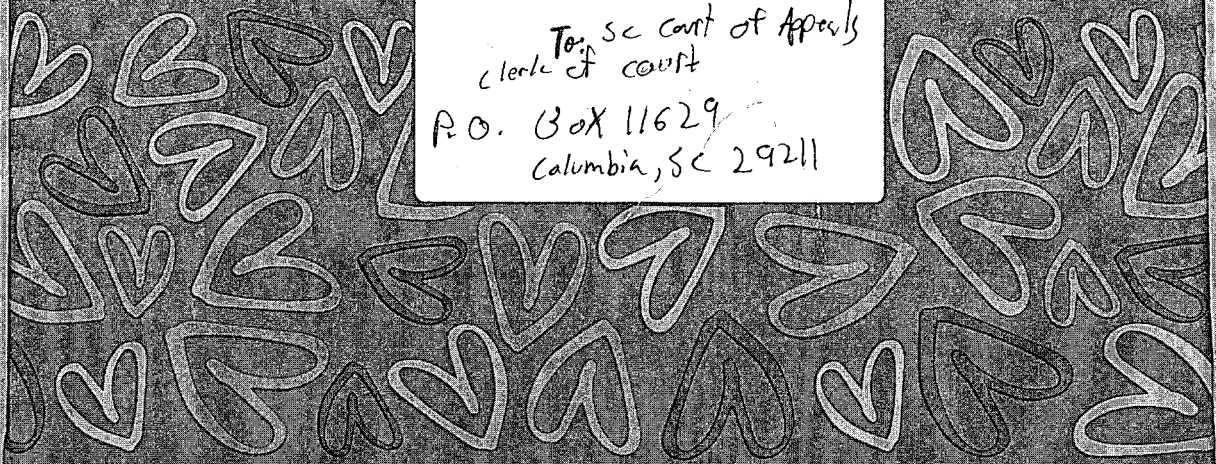 To: SC Court of Appeals
clerk of court
P.O. BOX 11629
Columbia, SC 29211